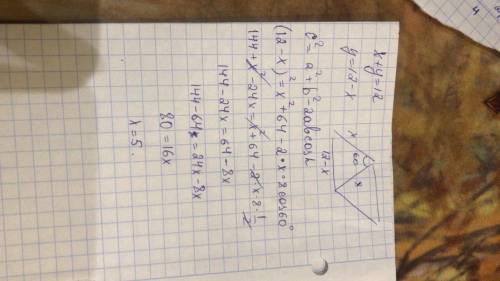 x+y=12
y=12-x
x
60
x
12-x
c²=a²+b²-2abcosα
(12-x)²=x²+64-2•x•8cos60°
144+x²-24x=x²+64-2•x•8•1/2
144-24x=64-8x
144-64=24x-8x
80=16x
x=5.